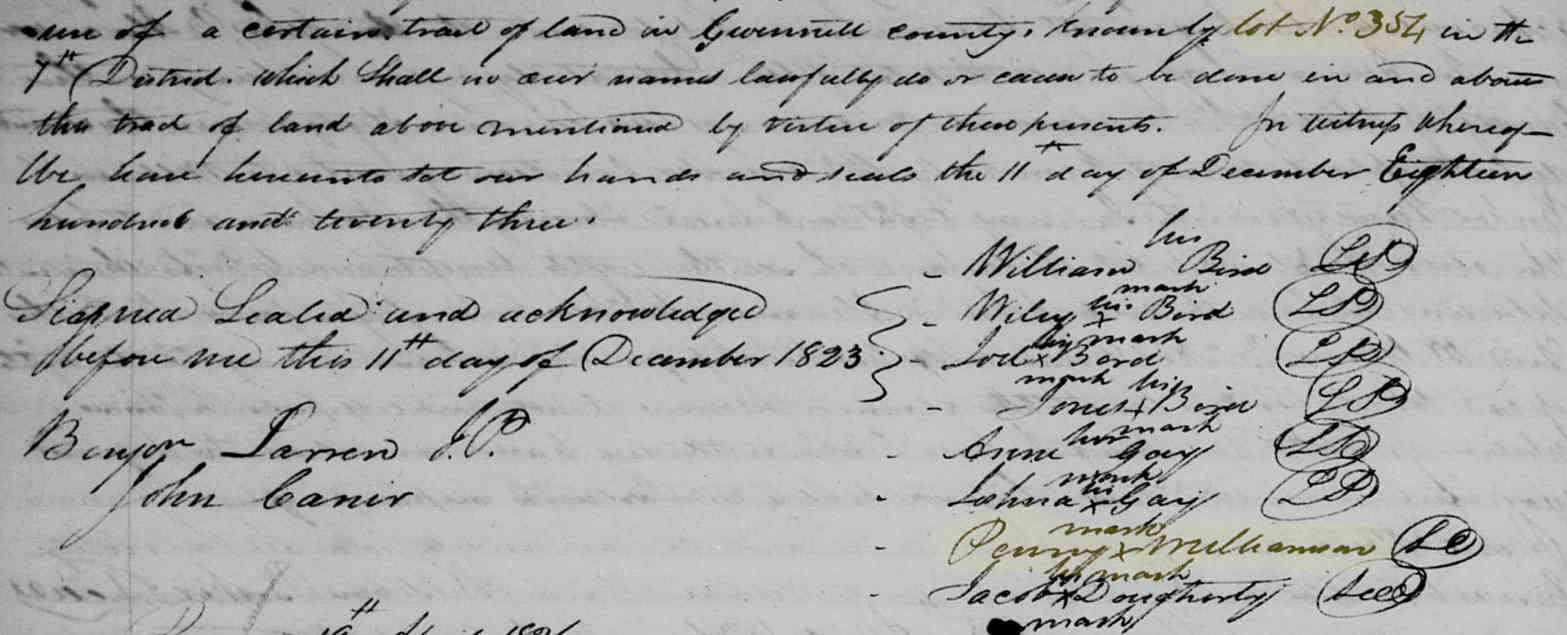 use of a certain tract of land in Gwinnett county, known by lot No. 354 in the
7th District. which shall in our names lawfully do or cause to be done in and about
the tract of land above mentioned by vertue of these presents. In witness whereof
We have hereunto set our hands and seals the 11th day of December Eighteen
hundred and twenty three.
his
William Bird (LS)
mark
Signed Sealed and acknowledged
before me this 11th day of December 1823
his
Wiley x Bird (LS)
mark
his
Joel x Bord (LS)
mark
his
x Bird (LS)
mark
J.P.
her
Anne Gay (LS)
mark
John
his
x Gay (LS)
mark
Penny x Williamson (LS)
his mark
Jacob x Dougherty (Seal)
mark